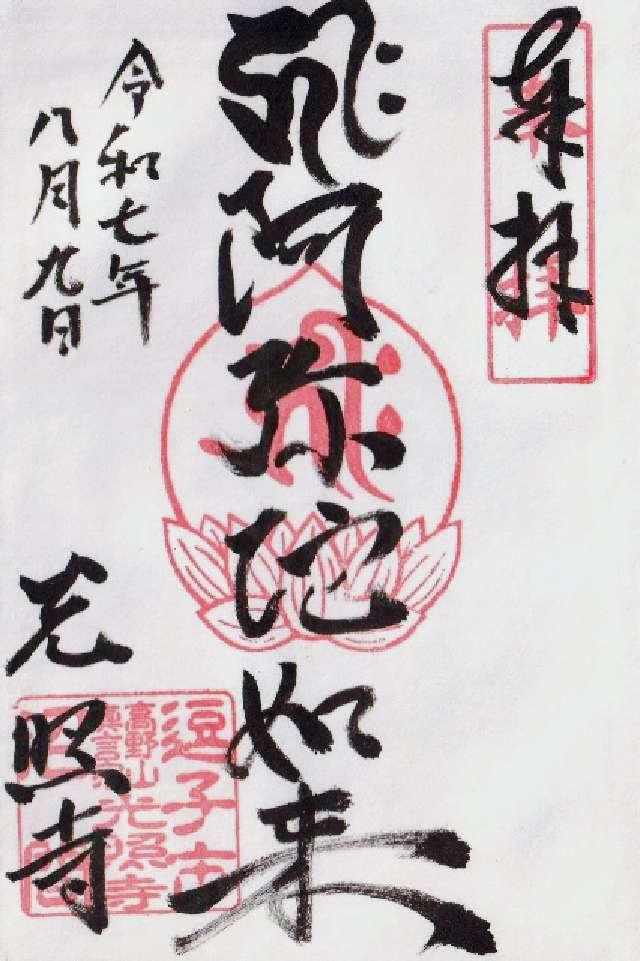 奉拝
奉拝
阿弥陀如来
令和七年
八月九日
光照寺
逗子市
高野山
真言宗
光照寺
沼間